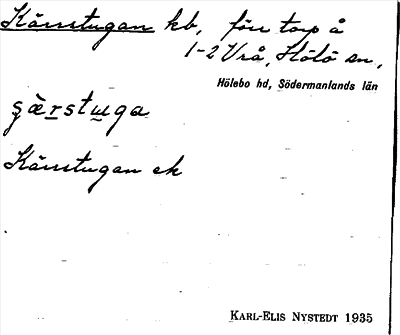 Kärrstugan kb, förr torp å
1-2 Vrå, Hölö sn,
Hölebo hd, Södermanlands län
şè̀rstuga
Kärrstugan ek
KARL-ELIS NYSTEDT 1935